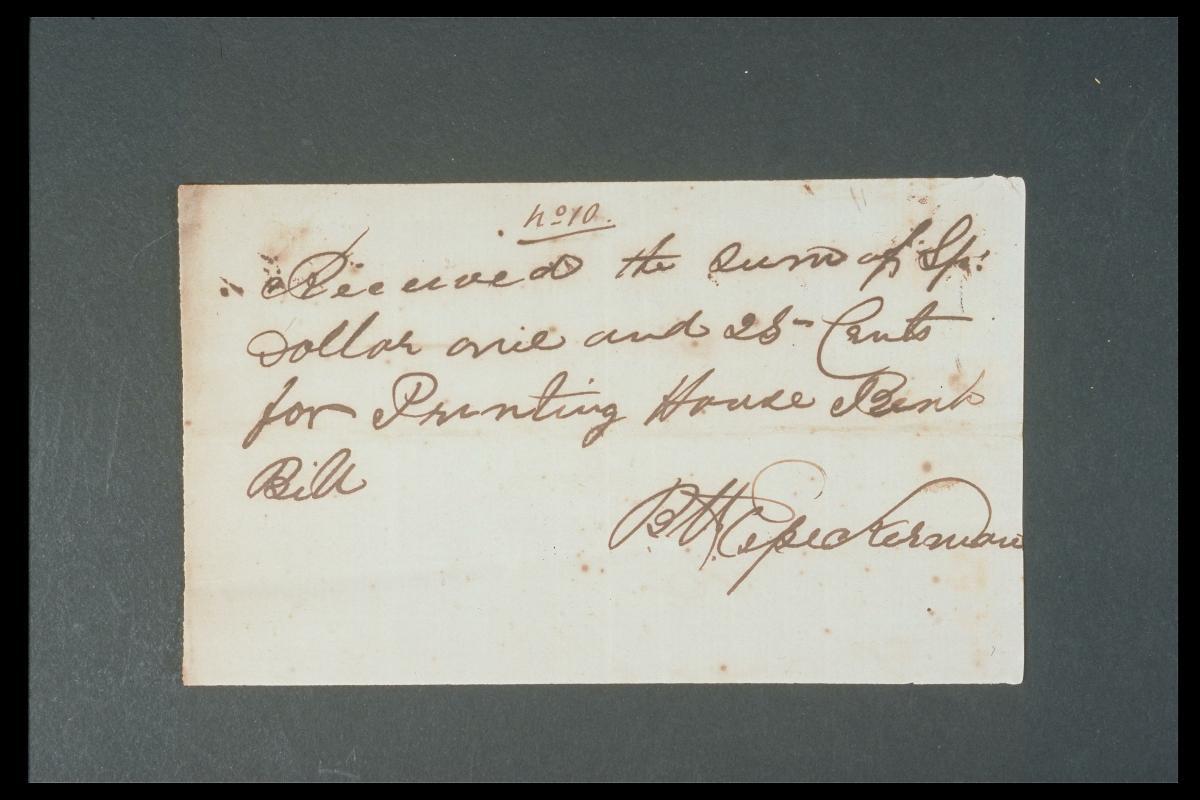 No 10.
Received the Sum of Sp:
Dollar one and 25 Cents
for Printing House Rent
Bill
B H